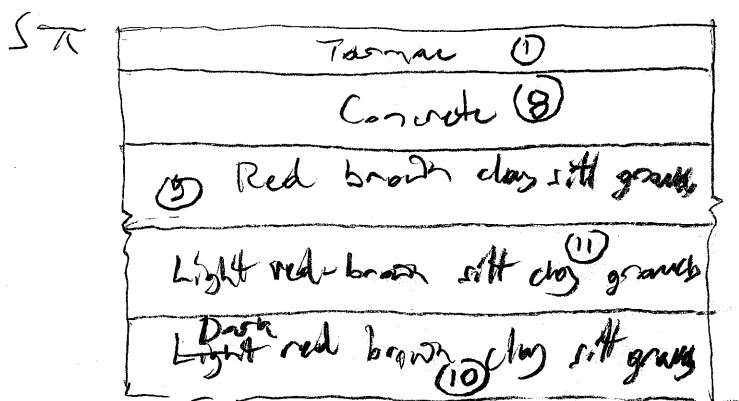 Tarmac ①
Concrete ⑧
⑨ Red brown clay silt gravels
Light red-brown silt clay ⑪ gravels
Dark
Light red brown clay silt gravels
⑩